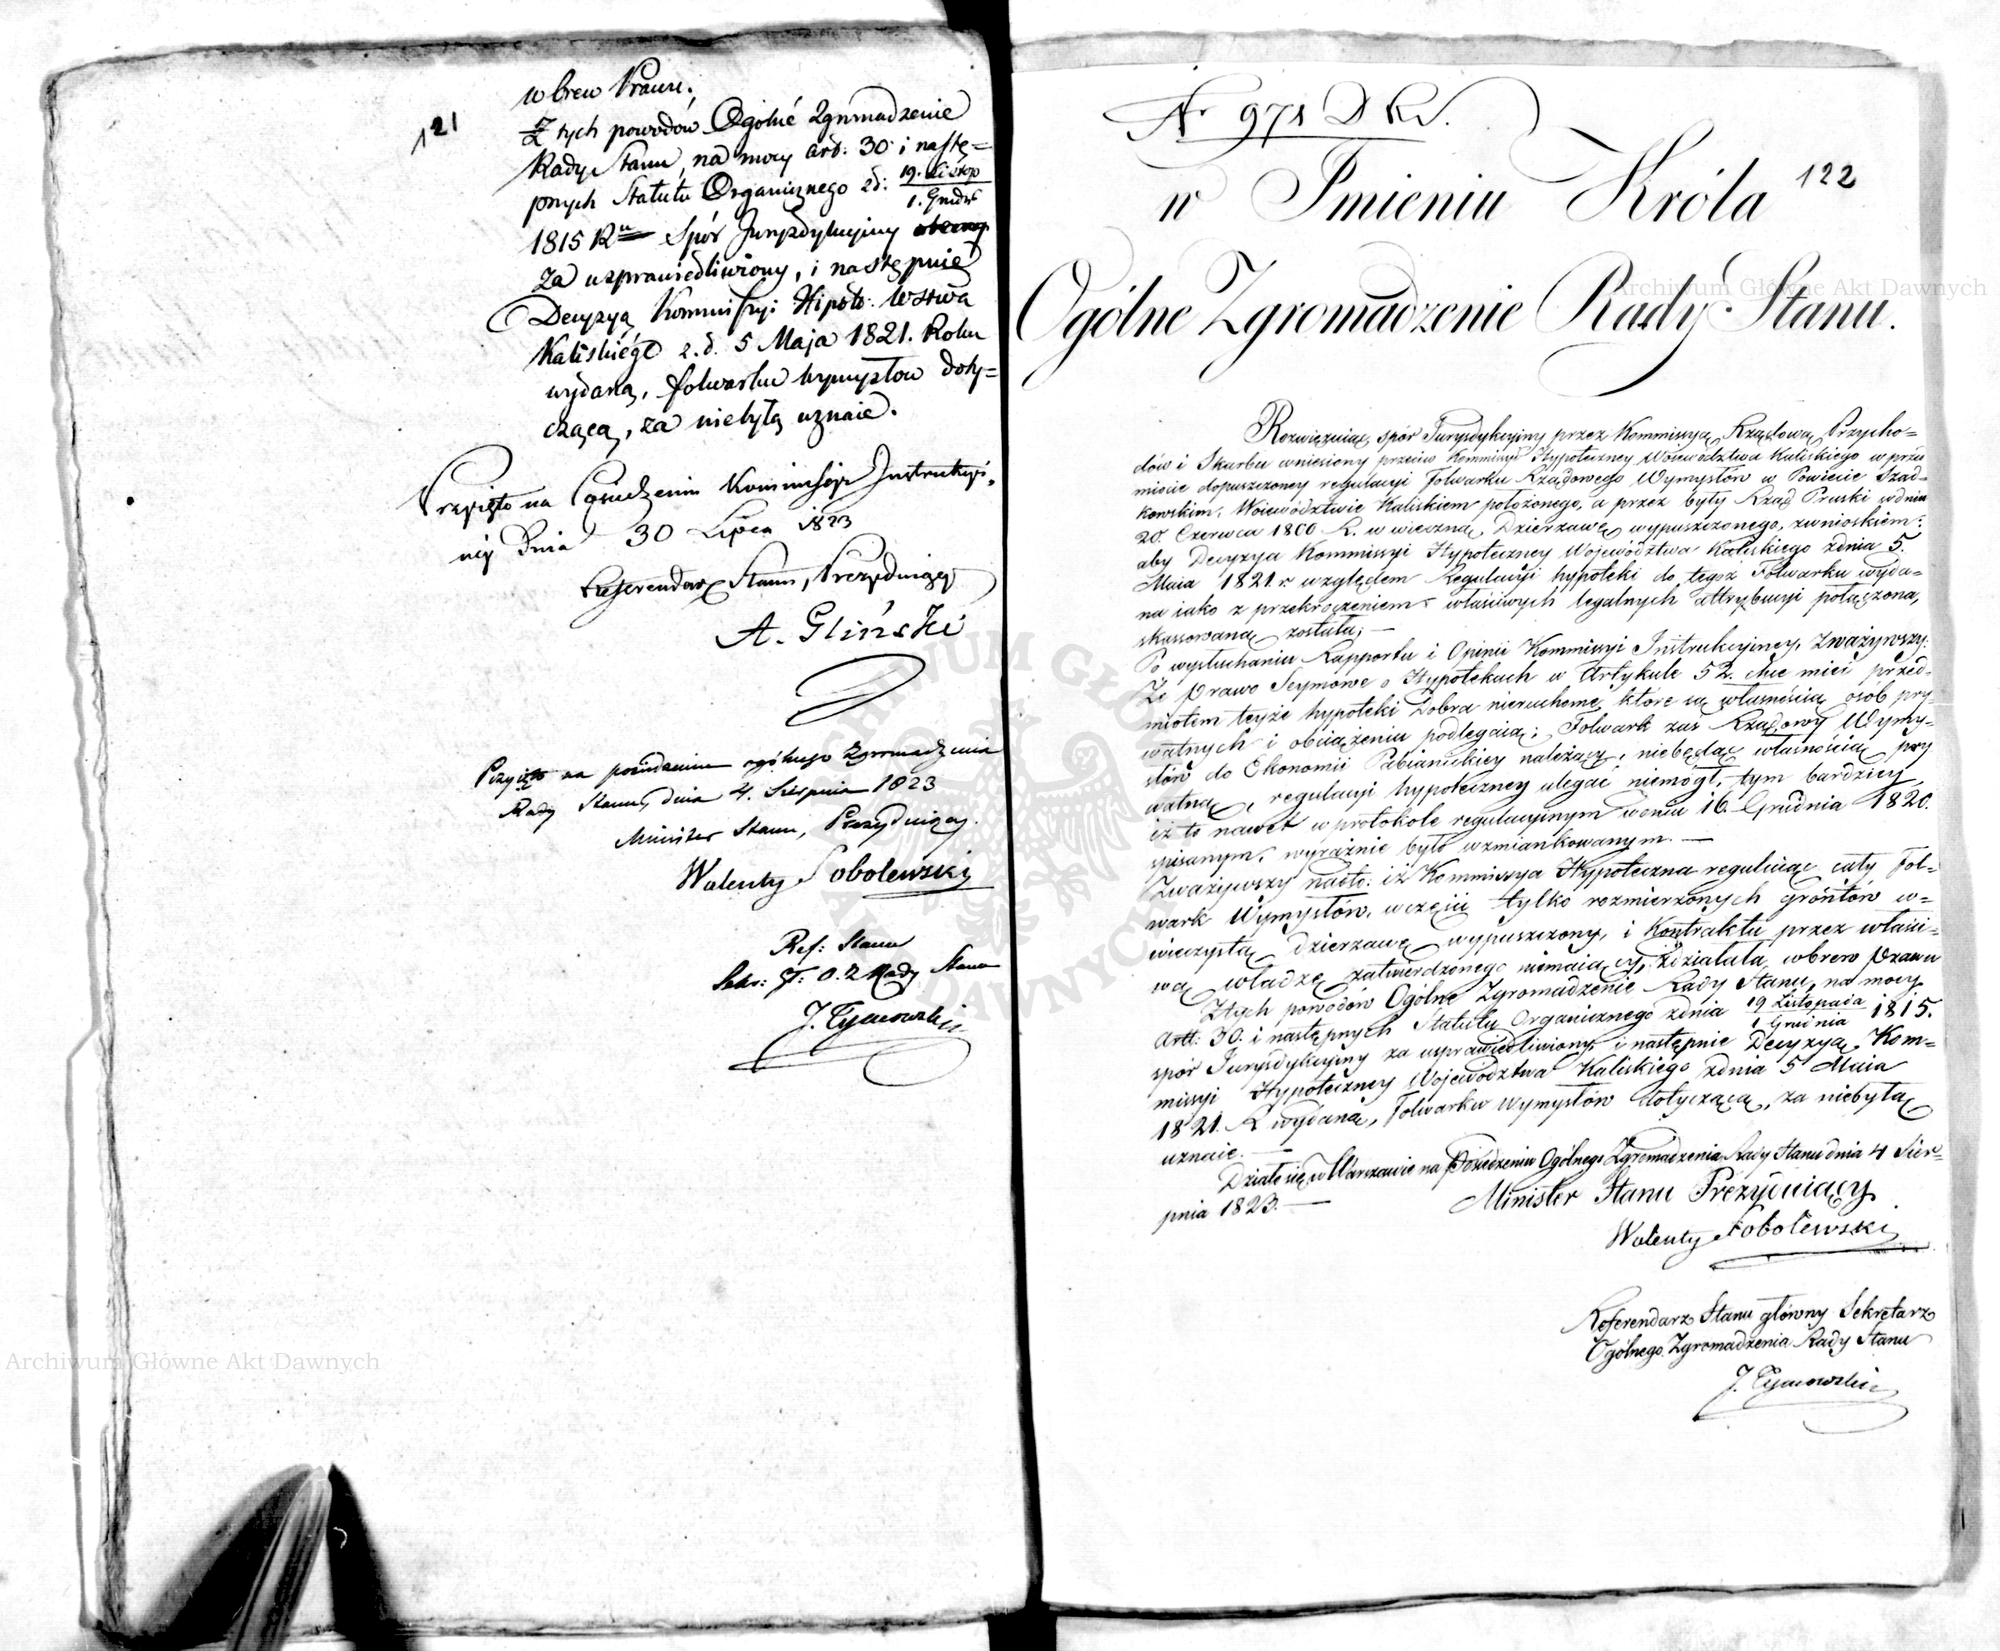 121
wbrew Prawu.
Z tych powodów Ogólné Zgromadzenie
Rady Stanu, na mocy art: 30 i nastę=
pnych Statutu Organicznego z d: 19. Listop
1. Grudn
1815 Ru Spór Juryzdykcyiny
za usprawiedliwiony, i następnie
Decyzyą Kommissyi Hipote: Wztwa
Kaliskiégo z. d. 5 Maja 1821. Roku
wydaną, folwarku Wymysłow doty=
czącą, za niebyłą uznaie.
Przyięto na Posiedzeniu Kommissyi Instrukcyi=
néy Dnia 30 Lipca 1823
Referendarz Stanu, Prezyduiący
A. Gliński
Przyięto na posiedzeniu ogólnego Zgromadzenia
Rady Stanu, dnia 4. Sierpnia 1823
Minister Stanu, Prezyduiący.
Walenty Sobolewski
Ref: Stanu
Sekr: Gł: O. Z Rady Stanu
J. Tymowski
Nr 971 D K.
122
w Imieniu Króla
Ogólne Zgromadzenie Rady Stanu.
Rozwięzuiąc, spór Jurysdykcyiny przez Kommissyą Rządową Przycho=
dów i Skarbu wniesiony przeciw Kommissyi Hypoteczney Województwa Kaliskiego w przed
miocie dopuszczoney regulacyi Folwarku Rządowego Wymysłów w Powiecie Szad=
kowskim, Województwie Kaliskiem położonego, a przez były Rząd Pruski w dniu
20. Czerwca 1800 R. w wieczną Dzierzawę wypuszczonego, z wnioskiem:
aby Decyzya Kommissyi Hypoteczney Województwa Kaliskiego z dnia 5.
Maia 1821 r. względem Regulacyi hypoteki do tegoż Folwarku wyda=
na iako z przekroczeniem właściwych legalnych attrybucyi połączona,
skassowaną została; —
Po wysłuchaniu Rapportu i Opinii Kommissyi Instrukcyiney, Zważywszy:
Że Prawo Seymowe o Hypotekach w Artykule 52. chce mieć przed=
miotem teyże hypoteki Dobra nieruchome, które są własnością osób pry=
watnych i obciążeniu podlegaią; Folwark zaś Rządowy Wymy=
słów do Ekonomii Pabianickiey należący, niebędąc własnością pry
watną, regulacyi hypoteczney ulegać niemógł, tym bardziey
iż to nawet w protokole regulacyinym w dniu 16. Grudnia 1820.
spisanym, wyraźnie było wzmiankowanym. —
Zważywszy nadto: iż Kommissya Hypoteczna reguluiąc cały Fol=
wark Wymysłów, w części tylko rozmierzonych gróntów w=
wieczystą dzierzawę wypuszczony, i Kontraktu przez właści=
wą władzę zatwierdzonego niemaiący, działała wbrew Prawu
Z tych powodów Ogólne Zgromadzenie Rady Stanu, na mocy
Artt. 30. i następnych Statutu Organicznego z dnia 19 Listopada 1815.
1 Grudnia
spór Jurysdykcyiny za usprawiedliwiony i następnie Decyzyą Kom=
missyi Hypoteczney Województwa Kaliskiego z dnia 5 Maia
1821. R wydaną, Folwarku Wymysłów dotyczącą, za niebyłą
uznaie. —
Działo się w Warszawie na Posiedzeniu Ogólnego Zgromadzenia Rady Stanu dnia 4 Sier=
pnia 1823. —
Minister Stanu Prezyduiący
Walenty Sobolewski
Referendarz Stanu główny Sekretarz
Ogólnego Zgromadzenia Rady Stanu
J. Tymowski
Archiwum Główne Akt Dawnych
Archiwum Główne Akt Dawnych
ARCHIWUM GŁÓWNE AKT DAWNYCH